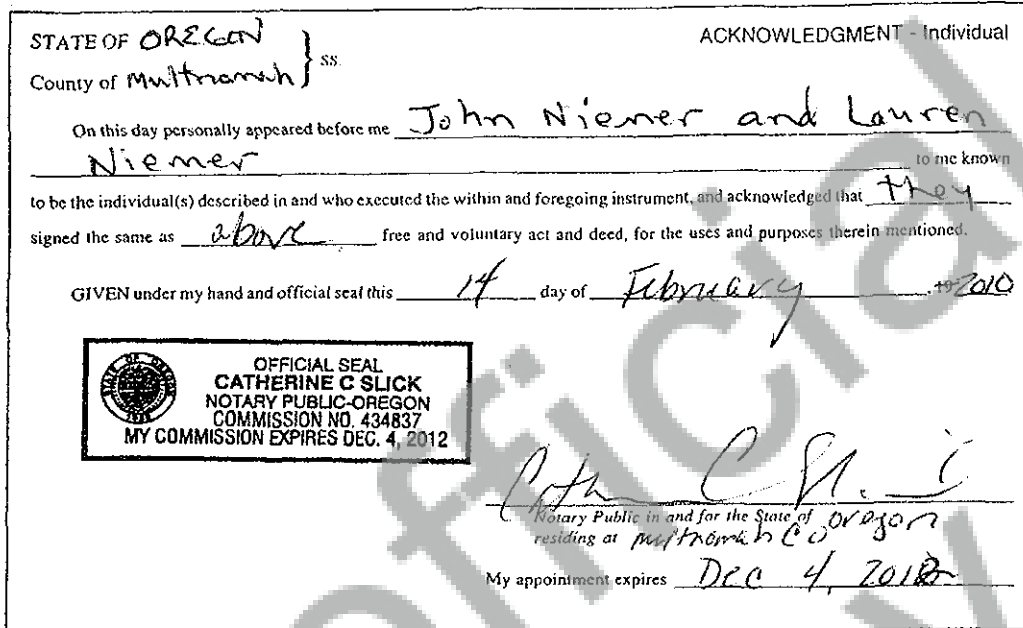 STATE OF OREGON } ss.
ACKNOWLEDGMENT - Individual
County of Multnomah
On this day personally appeared before me John Niemer and Lauren
Niemer to me known
to be the individual(s) described in and who executed the within and foregoing instrument, and acknowledged that they
signed the same as above free and voluntary act and deed, for the uses and purposes therein mentioned.
GIVEN under my hand and official seal this 14 day of February , 19 2010
STATE OF OREGON
1859
OFFICIAL SEAL
CATHERINE C SLICK
NOTARY PUBLIC-OREGON
COMMISSION NO. 434837
MY COMMISSION EXPIRES DEC. 4, 2012
Notary Public in and for the State of Oregon
residing at Multnomah Co
My appointment expires Dec 4, 2012
official